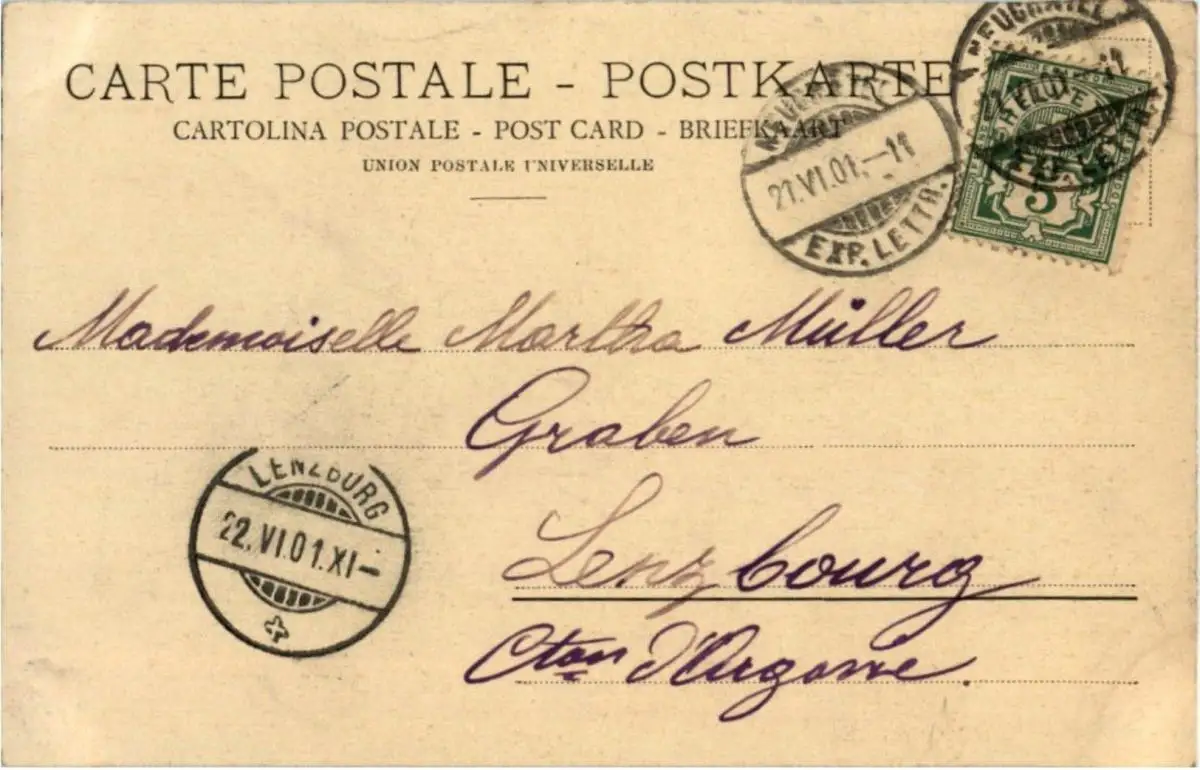 CARTE POSTALE - POSTKARTE
CARTOLINA POSTALE - POST CARD - BRIEFKAART
UNION POSTALE UNIVERSELLE
NEUCHATEL
EXP. LETTR.
21.VI.01.-11
EXP. LETTR.
5
Mademoiselle Martha Müller
Graben
Lenzbourg
Cton d'Argovie.
LENZBURG
22.VI.01.XI-